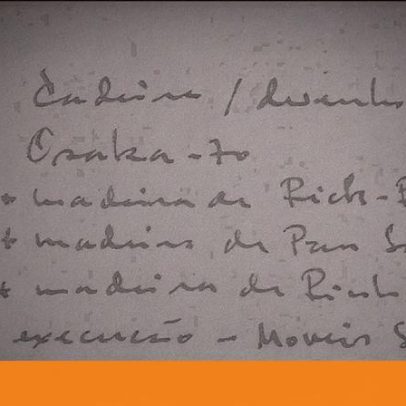 Cadeira / desenho
Osaka - 70
+ madeira de
+ madeira de Pau
+ madeira de
execução - Moveis